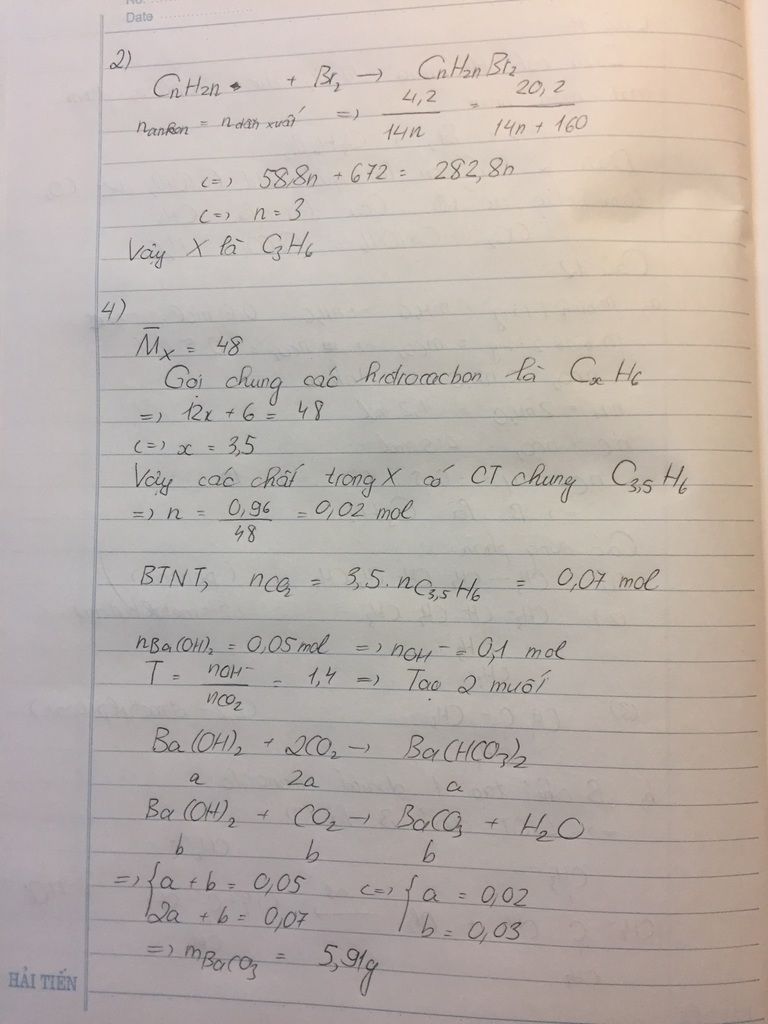 No.
Date
2)
CnH2n + Br2 → CnH2nBr2
n anken = n dẫn xuất => 4,2/14n = 20,2/14n + 160
<=> 58,8n + 672 = 282,8n
<=> n = 3
Vậy X là C3H6
4)
M̅x = 48
Gọi chung các hidrocacbon là CxH6
=> 12x + 6 = 48
<=> x = 3,5
Vậy các chất trong X có CT chung C3,5H6
=> n = 0,96/48 = 0,02 mol
BTNT, nCO2 = 3,5. nC3,5H6 = 0,07 mol
nBa(OH)2 = 0,05 mol => nOH- = 0,1 mol
T = nOH-/nCO2 = 1,4 => Tạo 2 muối
Ba(OH)2 + 2CO2 → Ba(HCO3)2
a 2a a
Ba(OH)2 + CO2 → BaCO3 + H2O
b b b
=> { a + b = 0,05 <=> { a = 0,02
2a + b = 0,07 b = 0,03
=> mBaCO3 = 5,91g
HẢI TIẾN